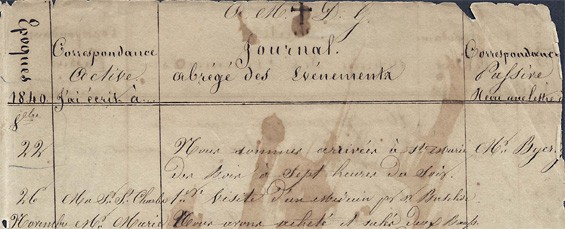 A. M. † D. G.
Epoques
Correspondance
Active.
Journal.
abrégé des Evénements
Correspondance
Passive
1840
J'ai écrit à...
Reçu une lettre d
8bre
22
Nous sommes arrivées à Ste Marie
Mr
des Bois à Sept heures du Soir.
26
Ma Sr. St. Charles
1re Visite d'un Médecin
Novembre
Mr. Marie
Nous avons acheté et salé deux